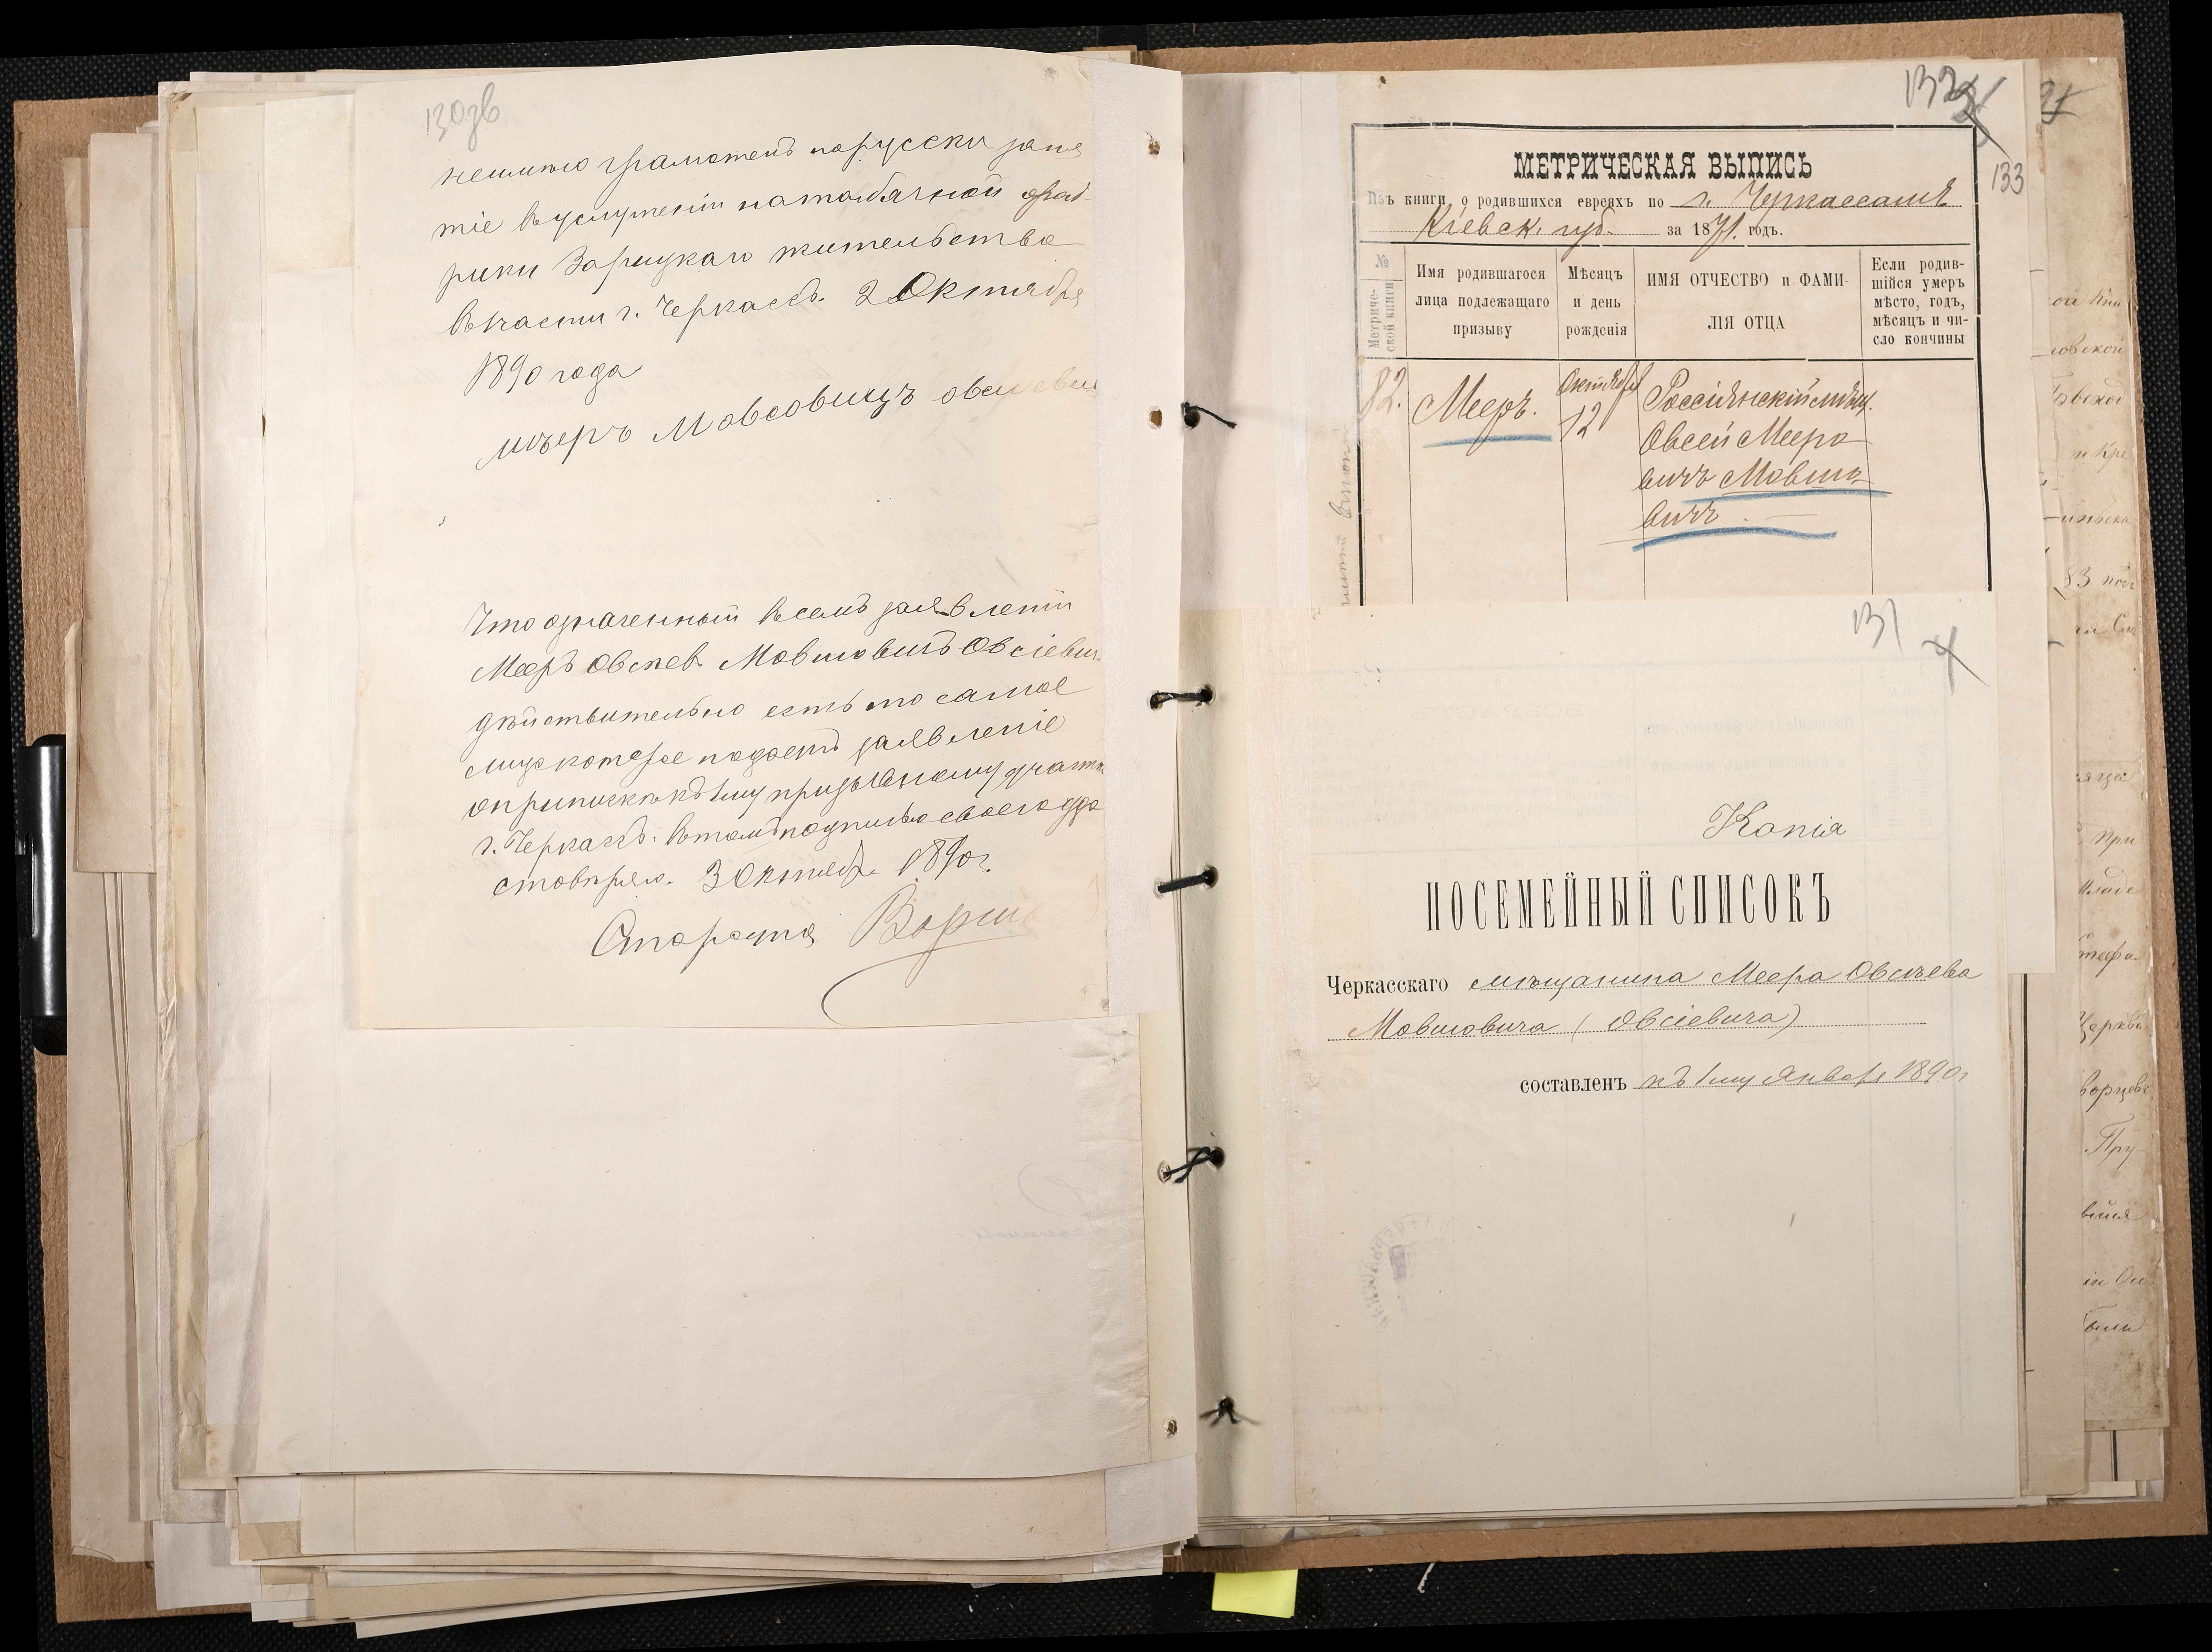 130зв
немного грамотенъ порусски заня
тіе въуслуженіи натабачной фаб
рики Зарицкаго жительство
вчасти г. Черкассъ. 2 Октября
1890 года
меръ Мовсовичъ овсиеви
Что означенный Всемъ заявленіи
Мееръ Овсиев. Мовшовичъ Овсіевич
дѣйствительно есть то самое
лице которое подаетъ заявленіе
оприпискѣ къ 1му призывному участк
г. Черкассъ. Втомъ подписью своего удо
стовѣряю. 3 Октября 1890 г.
Староста
132
133
МЕТРИЧЕСКАЯ ВЫПИСЬ
Изъ книги о родившихся евреяхъ по г. Черкассамъ
Кіевск. губ. за 1871. годъ.
№ Метриче-ской книги
Имя родившагося лица подлежащаго призыву
Мѣсяцъ и день рожденія
ИМЯ ОТЧЕСТВО и ФАМИ-ЛІЯ ОТЦА
Если родив-шійся умеръ мѣсто, годъ, мѣсяцъ и чи-сло кончины
82. Мееръ. Октября 12 Россіянскій мѣщ.
Овсей Мееро
вичъ Мовшо
вичъ.
131
Копія
ПОСЕМЕЙНЫЙ СПИСОКЪ
Черкасскаго мѣщанина Меера Овсѣева
Мовшовича (Овсіевича)
составленъ къ 1му Января 1890 г